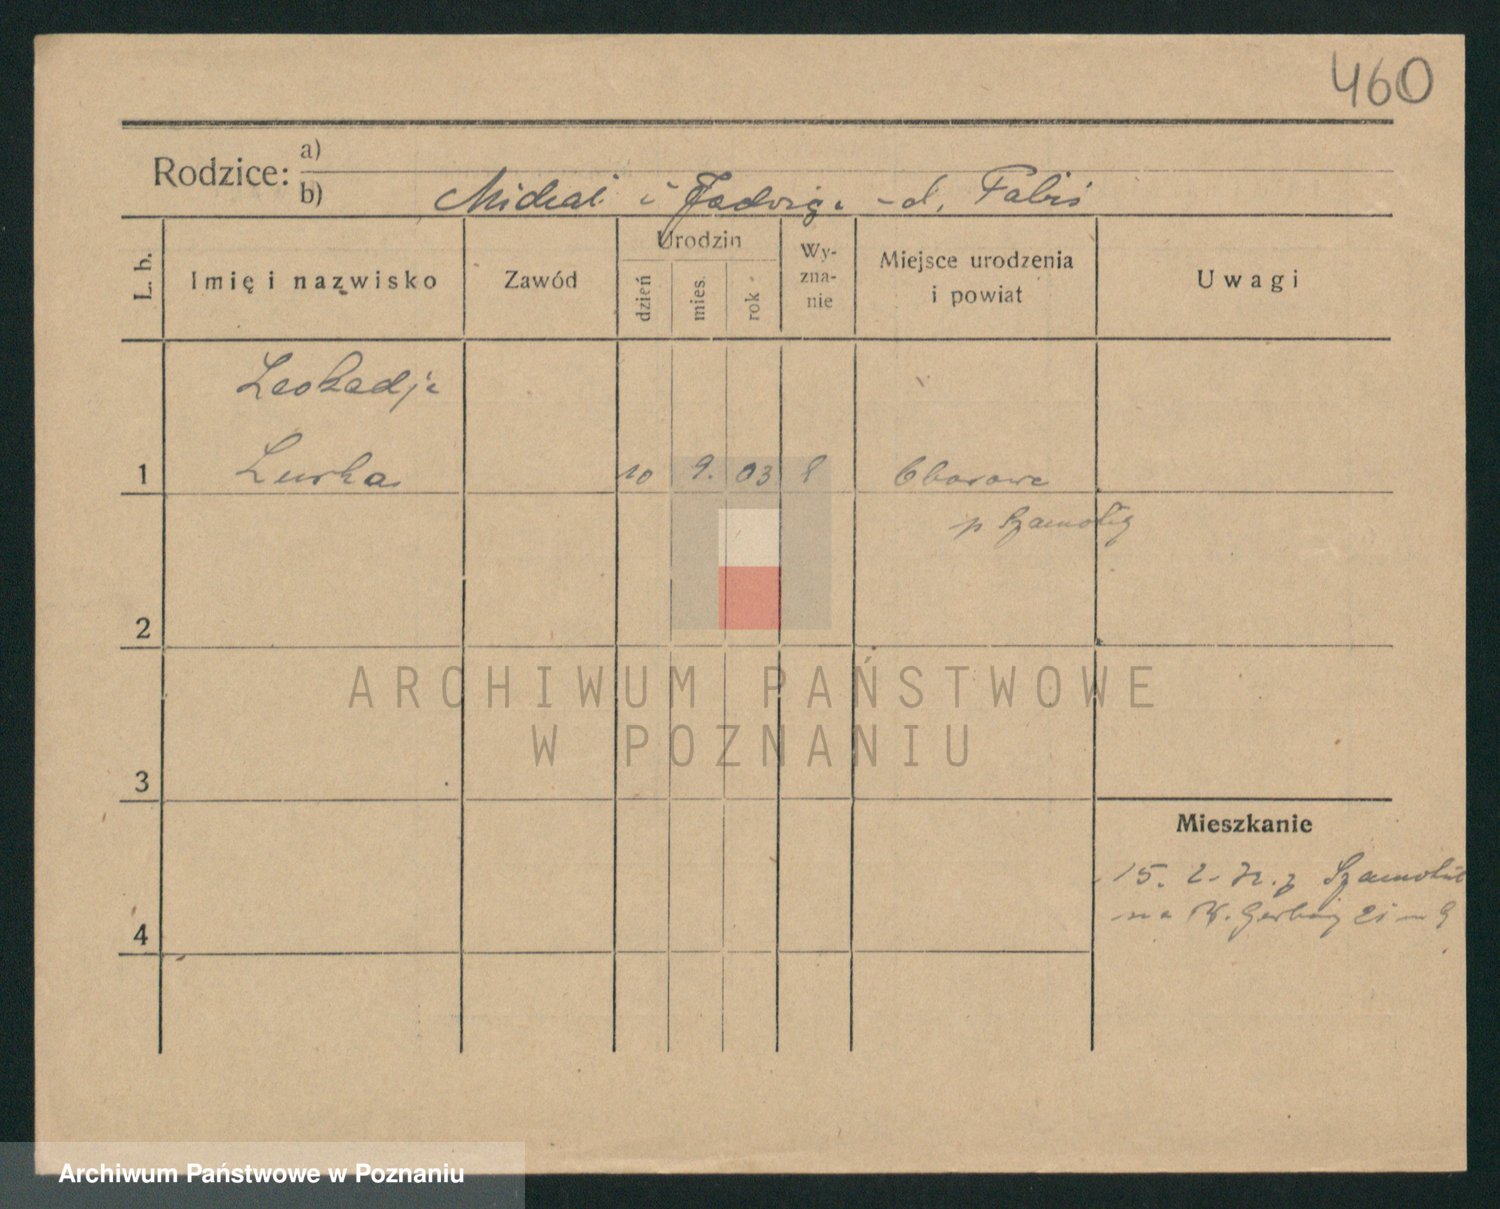 460
Rodzice: a)
b) Michał i Jadwiga -d. Fabiś
L. b.
Imię i nazwisko
Zawód
Urodzin
dzień
mies.
rok
Wy-
zna-
nie
Miejsce urodzenia
i powiat
Uwagi
Leokadja
1
10 9. 03
p Szamotuły
2
ARCHIWUM PAŃSTWOWE
W POZNANIU
3
Mieszkanie
15. 2. z Szamotuł
na
4
Archiwum Państwowe w Poznaniu